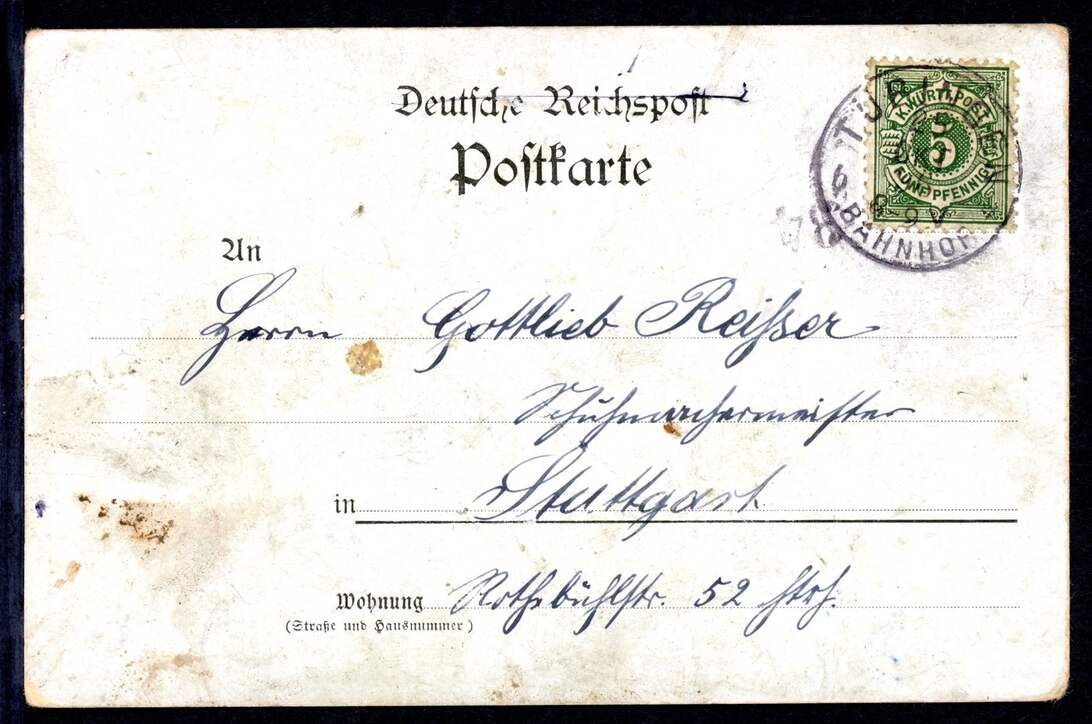 Deutsche Reichspost
Postkarte
K. WÜRTT. POST
5
FÜNF PFENNIG
BAHNHOF
An
Herrn Gottlieb Reisser
Schuhmachermeister
in Stuttgart
Wohnung Rothebühlstr. 52 Htrh.
(Straße und Hausnummer)